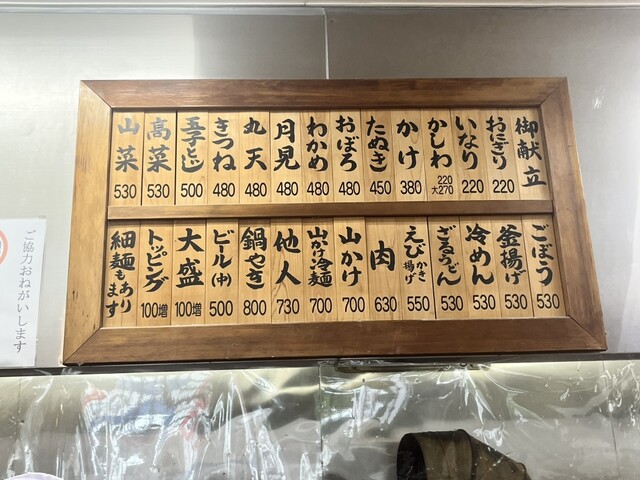 御献立
おにぎり 220
いなり 220
かしわ 220 大270
かけ 380
たぬき 450
おぼろ 480
わかめ 480
月見 480
丸天 480
きつね 480
玉子とじ 500
高菜 530
山菜 530
ごぼう 530
釜揚げ 530
冷めん 530
ざるうどん 530
えびかき揚げ 550
肉 630
山かけ 700
山かけ冷麺 700
他人 730
鍋やき 800
ビール(中) 500
大盛 100増
トッピング 100増
細麺もあります
ご協力おねがいします